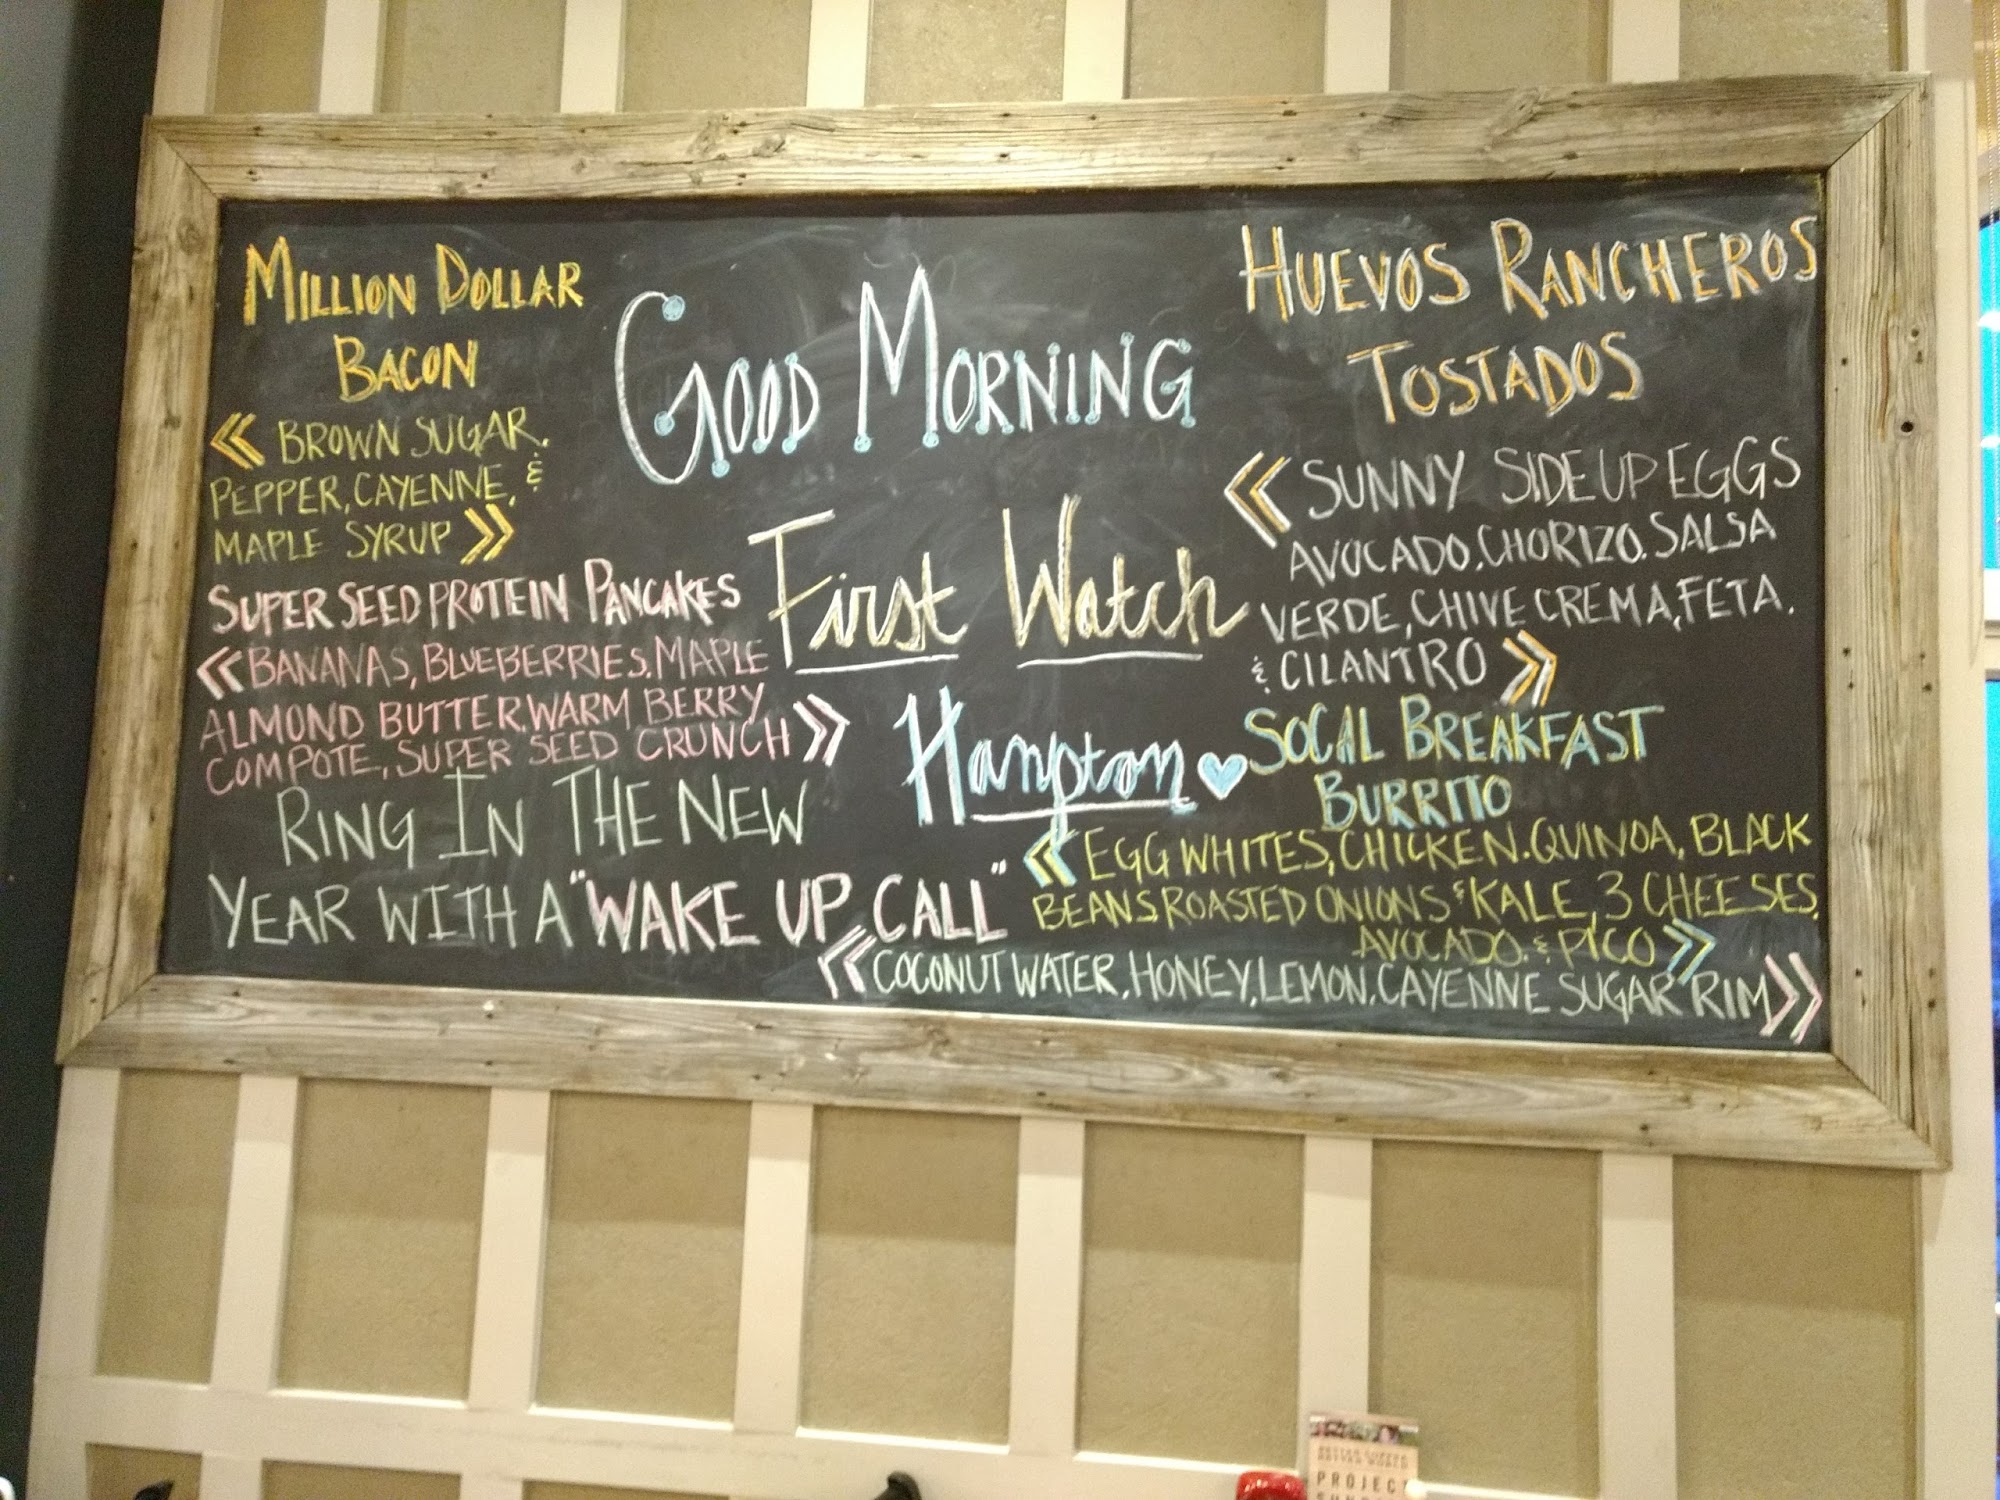 MILLION DOLLAR
BACON
« BROWN SUGAR,
PEPPER, CAYENNE, &
MAPLE SYRUP »
SUPER SEED PROTEIN PANCAKES
« BANANAS, BLUEBERRIES, MAPLE
ALMOND BUTTER, WARM BERRY
COMPOTE, SUPER SEED CRUNCH »
GOOD MORNING
First Watch
Hampton ♥
HUEVOS RANCHEROS
TOSTADOS
« SUNNY SIDE UP EGGS
AVOCADO, CHORIZO, SALSA
VERDE, CHIVE CREMA, FETA,
& CILANTRO »
SOCAL BREAKFAST
BURRITO
« EGG WHITES, CHICKEN, QUINOA, BLACK
BEANS, ROASTED ONIONS & KALE, 3 CHEESES,
AVOCADO, & PICO »
RING IN THE NEW
YEAR WITH A "WAKE UP CALL"
« COCONUT WATER, HONEY, LEMON, CAYENNE SUGAR RIM »
BETTER COFFEE
BETTER WORLD
PROJECT